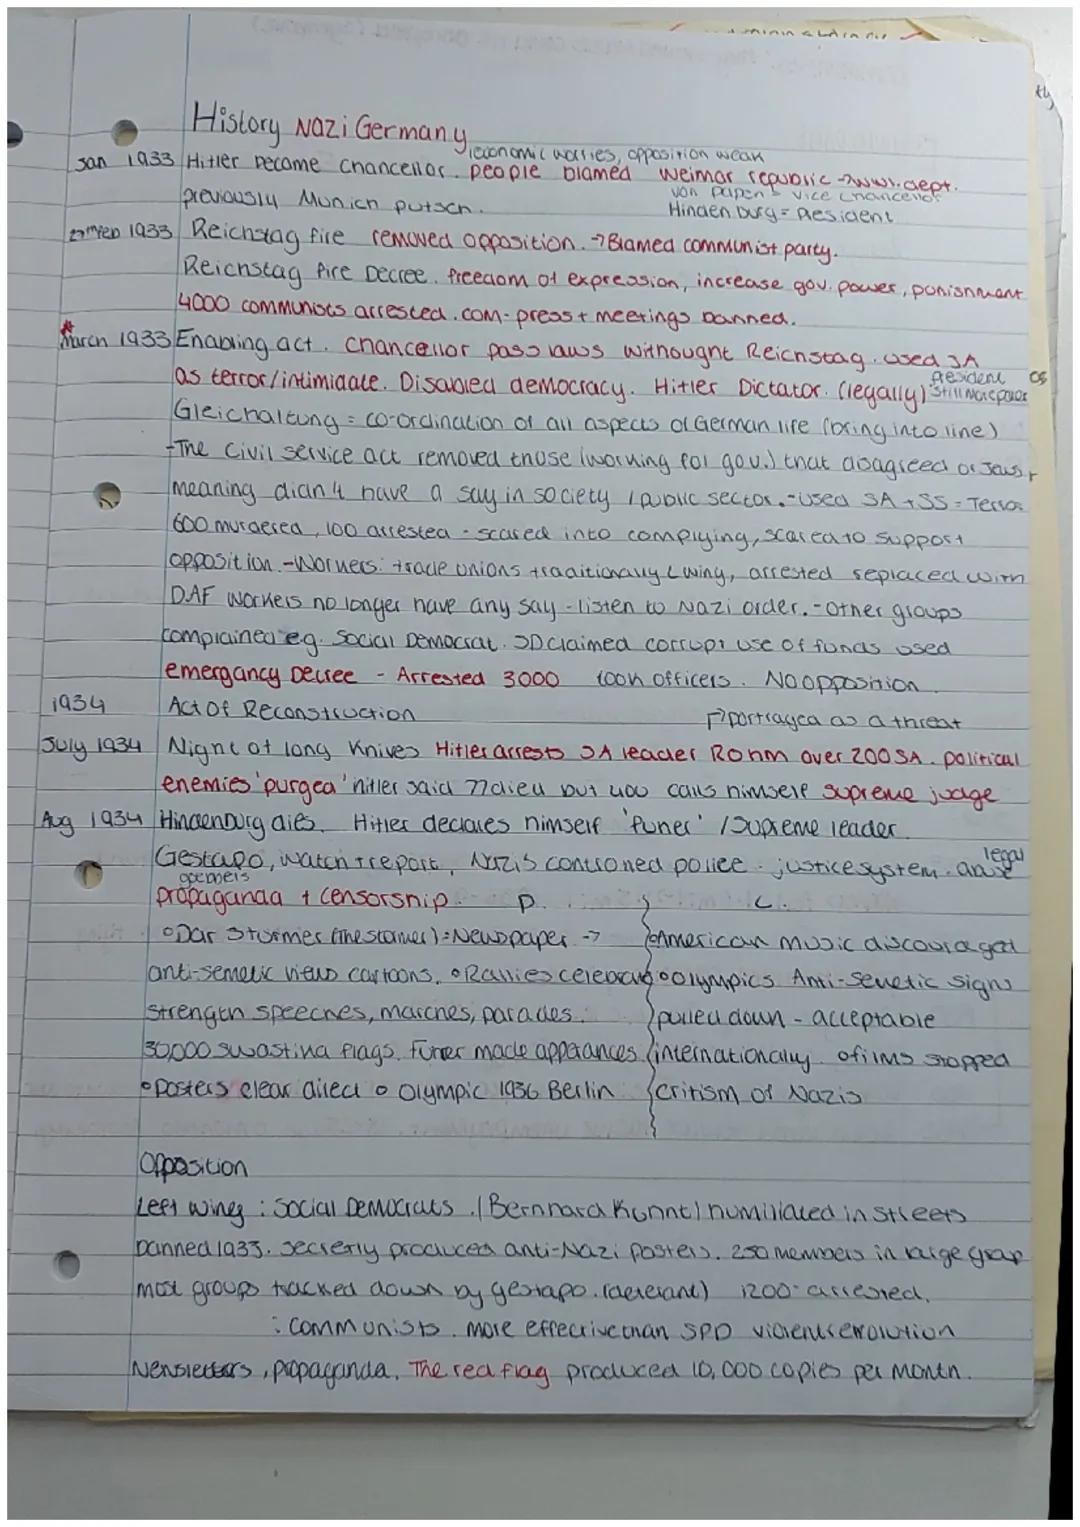 History Nazi Germany
economic worries, opposition weak
Jan 1933 Hitler become chancellor. people blamed Weimar republic → ww1. dept.
previously Munich putsch. von papen = vice chancellor
Hindenburg = President
27th Feb 1933 Reichstag fire removed opposition. → Blamed communist party.
Reichstag fire Decree. freedom of expression, increase gov. power, punishment
4000 communists arrested. com- press + meetings banned.
March 1933 Enabling act. chancellor pass laws withought Reichstag. used SA
as terror/intimidate. Disabled democracy. Hitler Dictator. (legally) President still more power
Gleichaltung = co-ordination of all aspects of German life (bring into line)
-The civil service act removed those (working for gov.) that disagreed or Jews,
meaning didn't have a say in society / public sector. - used SA + SS = Terror
600 murdered, 100 arrested - scared into complying, scared to support
opposition. - Workers: trade unions traditionally L wing, arrested replaced with
DAF workers no longer have any say - listen to Nazi order. - other groups
complained e.g. Social Democrat. SD claimed corrupt use of funds used
emergancy Decree - Arrested 3000 took officers. No opposition
1934 Act Of Reconstruction
portrayed as a threat
July 1934 Night of long Knives Hitler arrests SA leader Rohm over 200 SA. political
enemies 'purged' hitler said 77 died but 400 calls himself supreme judge
Aug 1934 Hindenburg dies. Hitler declares himself 'furher' / Supreme leader.
Gestapo, watch + report, Nazis controned police. justice system. legal
goebbels
propaganda + censorship P. C.
Dar Sturmer (the stormer) = Newspaper → American music discouraged
anti-semetic views cartoons. Rallies celebrate Olympics Anti-Semetic signs
strength speeches, marches, parades. pulled down - acceptable
30,000 swastika flags. Furher made apperances internationally. films stopped
posters clear direct Olympic 1936 Berlin critism of Nazis
Opposition
Left wing : Social Democrats. (Bernhard Kuhnt) humiliated in streets
banned 1933. secretly produced anti-Nazi posters. 250 members in large group
most groups tracked down by gestapo. 1200 arrested.
: Communists. more effective than SPD violent revolution
Newsletters, propaganda. The red flag produced 10,000 copies per month.